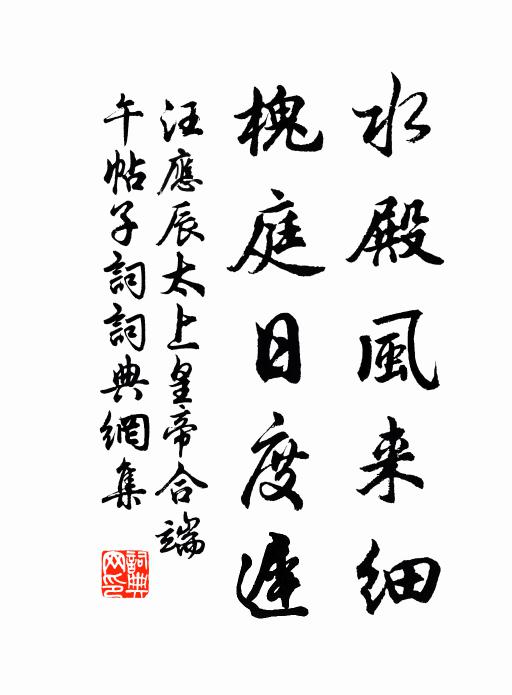 水殿風来細
槐庭日度遲
汪應辰太上皇帝合端
午帖子詞詞典網集
詞典
网印